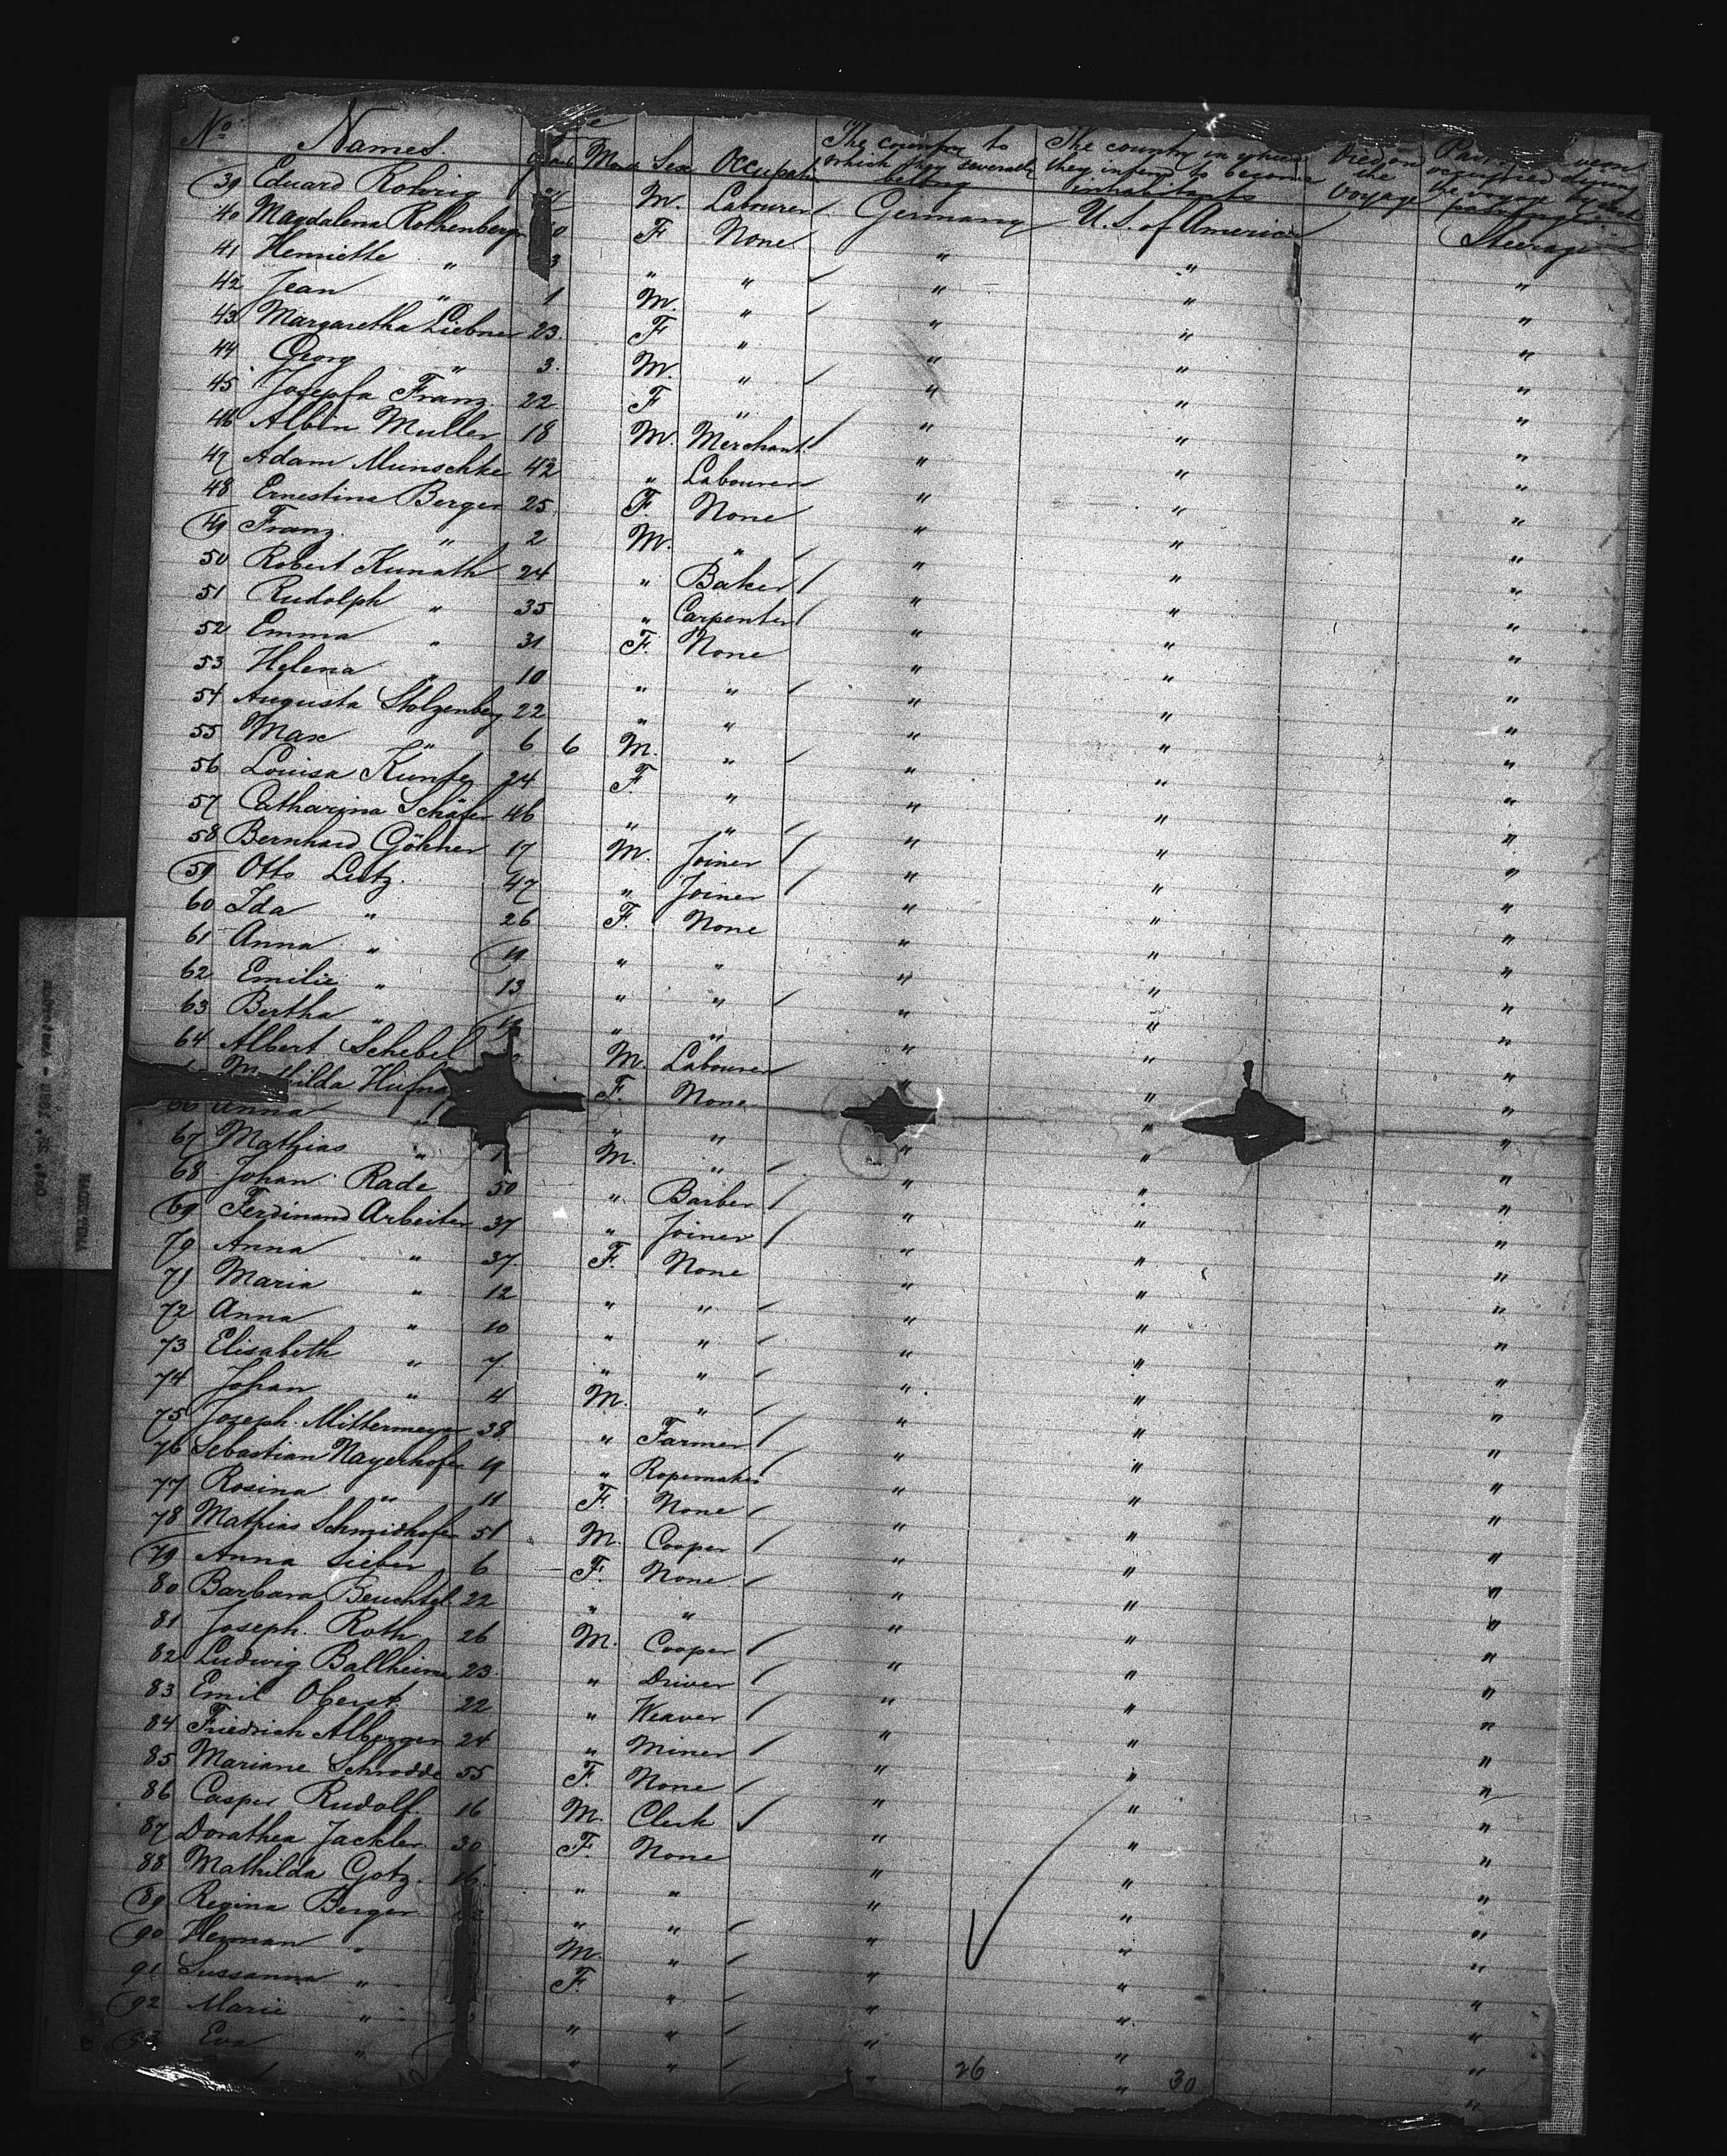 No. Names Age Years Months Sex Occupation The country to which they severally belong The country in which they intend to become inhabitants Died on the Voyage Part of vessel occupied during the voyage by each passenger
39 Eduard Rohrig M. Labourer Germany U.S. of America Steerage
40 Magdalena Rothenberger F None " " "
41 Henriette " 3 " " " " "
42 Jean " 1 M. " " " "
43 Margaretha Liebner 23. F " " " "
44 Georg " 3. M. " " " "
45 Josepfa Franz 22 F " " " "
46 Albin Muller 18 M. Merchant " " "
47 Adam Munschke 42 " Labourer " " "
48 Ernestina Berger 25 F. None " " "
49 Franz " 2 M. " " " "
50 Robert Kunath 24 " Baker " " "
51 Rudolph " 35 " Carpenter " " "
52 Emma " 31 F. None " " "
53 Helena " 10 " " " " "
54 Augusta Stolzenberg 22 " " " " "
55 Max " 6 6 M. " " " "
56 Louisa Kunte 24 F. " " " "
57 Catharina Schäfer 46 " " " " "
58 Bernhard Göhner 17 M. Joiner " " "
59 Otto Lutz. 47 " Joiner " " "
60 Ida " 26 F. None " " "
61 Anna " 19 " " " " "
62 Emilie " 13 " " " " "
63 Bertha " " " " " "
64 Albert Schebel M. Labourer " " "
Mathilda F. None " " "
66 Anna " " " " " "
67 Mathias " 1 M. " " " "
68 Johan Rade 50 " Barber " " "
69 Ferdinand Arbeiter 37 " Joiner " " "
70 Anna " 37. F. None " " "
71 Maria " 12 " " " " "
72 Anna " 10 " " " " "
73 Elisabeth " 7. " " " " "
74 Johan " 4 M. " " " "
75 Joseph Mittermeyer 38 " Farmer " " "
76 Sebastian Mayerhofer 19 " Ropemaker " " "
77 Rosina " 11 F. None " " "
78 Mathias Schmidhofer 51 M. Cooper " " "
79 Anna Sieber 6 F. None " " "
80 Barbara Beuchtel 22 " " " " "
81 Joseph Roth 26 M. Cooper " " "
82 Ludwig Ballheimer 23. " Driver " " "
83 Emil Oberst 22 " Weaver " " "
84 Friedrich Alberger 24 " Miner " " "
85 Mariane Schrodde 55 F. None " " "
86 Casper Rudolf. 16 M. Clerk " " "
87 Dorathea Jackler 30 F None " " "
88 Mathilda Gotz. 16 " " " " "
89 Regina Berger " " " " "
90 Herman " M. " " " "
91 Sussanna " F. " " " "
92 Marie " " " " " "
93 Eva " " " " " "
26 30